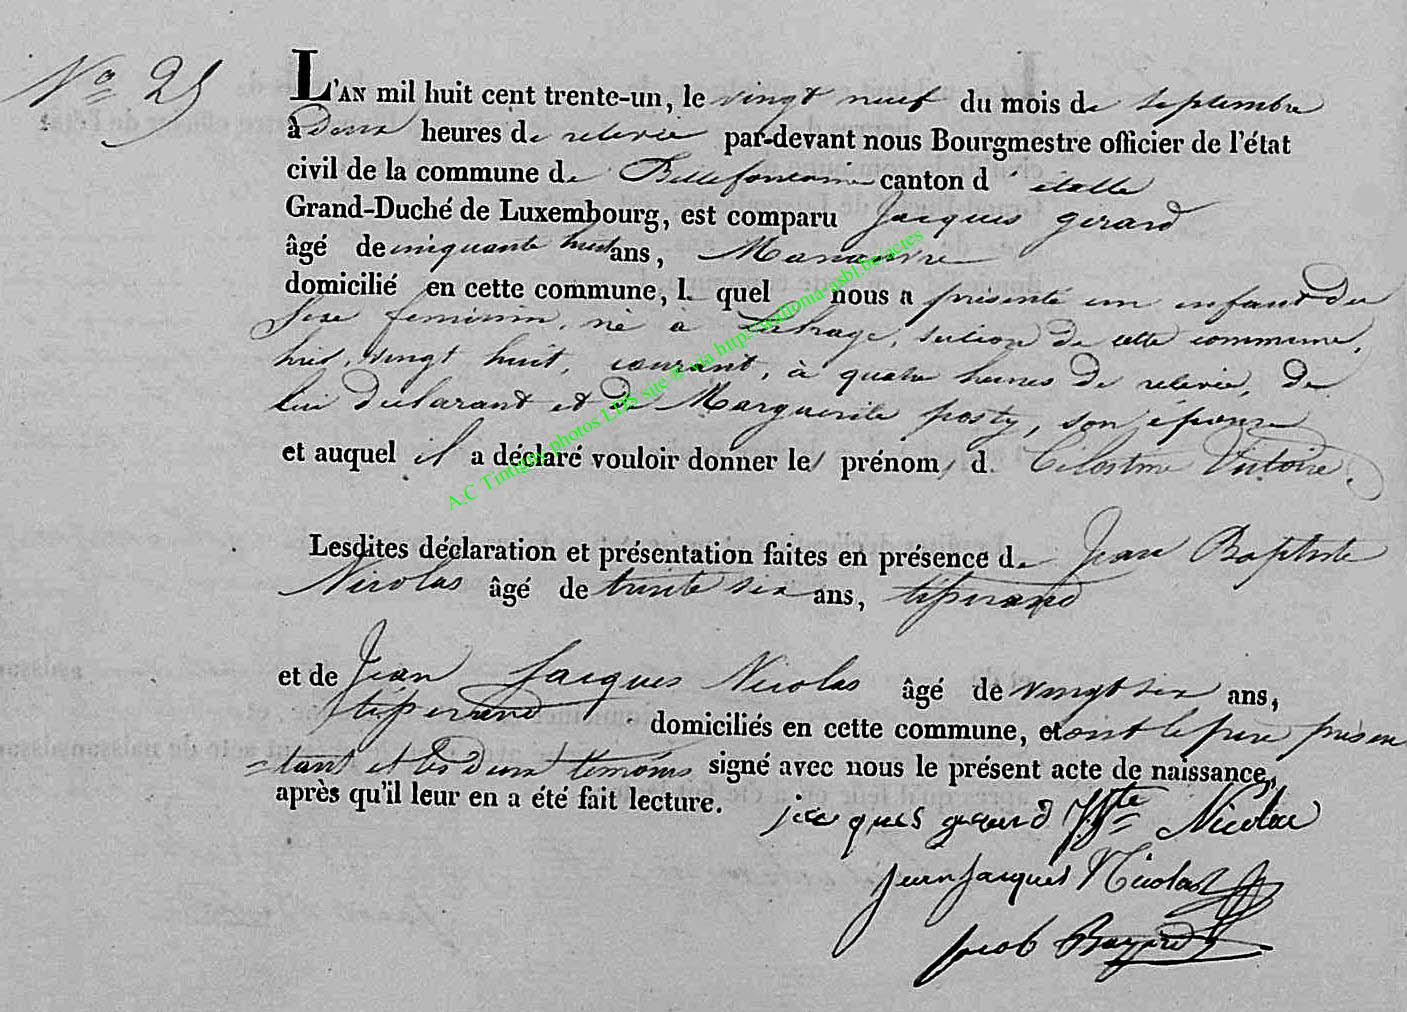 No 25
L'AN mil huit cent trente-un, le vingt neuf du mois de septembre
à deux heures de relevée par-devant nous Bourgmestre officier de l'état
civil de la commune de Bellefontaine canton d'étalle
Grand-Duché de Luxembourg, est comparu Jacques gerard
âgé de cinquante huit ans, Manœuvre
domicilié en cette commune, l. quel nous a présenté un enfant du
sexe feminin, né à Lahage, section de cette commune,
hier, vingt huit, courant, à quatre heures de relevée, de
lui declarant et de Marguerite posty, son épouse
et auquel il a déclaré vouloir donner les prénoms de Celestine Victoire.
Lesdites déclaration et présentation faites en présence de Jean Baptiste
Nicolas âgé de trente six ans, tisserand
et de Jean Jacques Nicolas âgé de vingt six ans,
tisserand domiciliés en cette commune, et ont le pere présen
=tant et les deux temoins signé avec nous le présent acte de naissance,
après qu'il leur en a été fait lecture.
jacques gerard JBte Nicolas
jean jacques Nicolas
jacob Bazard
A.C Tintigny photos LDS site & via http://wallonia-asbl.be/actes